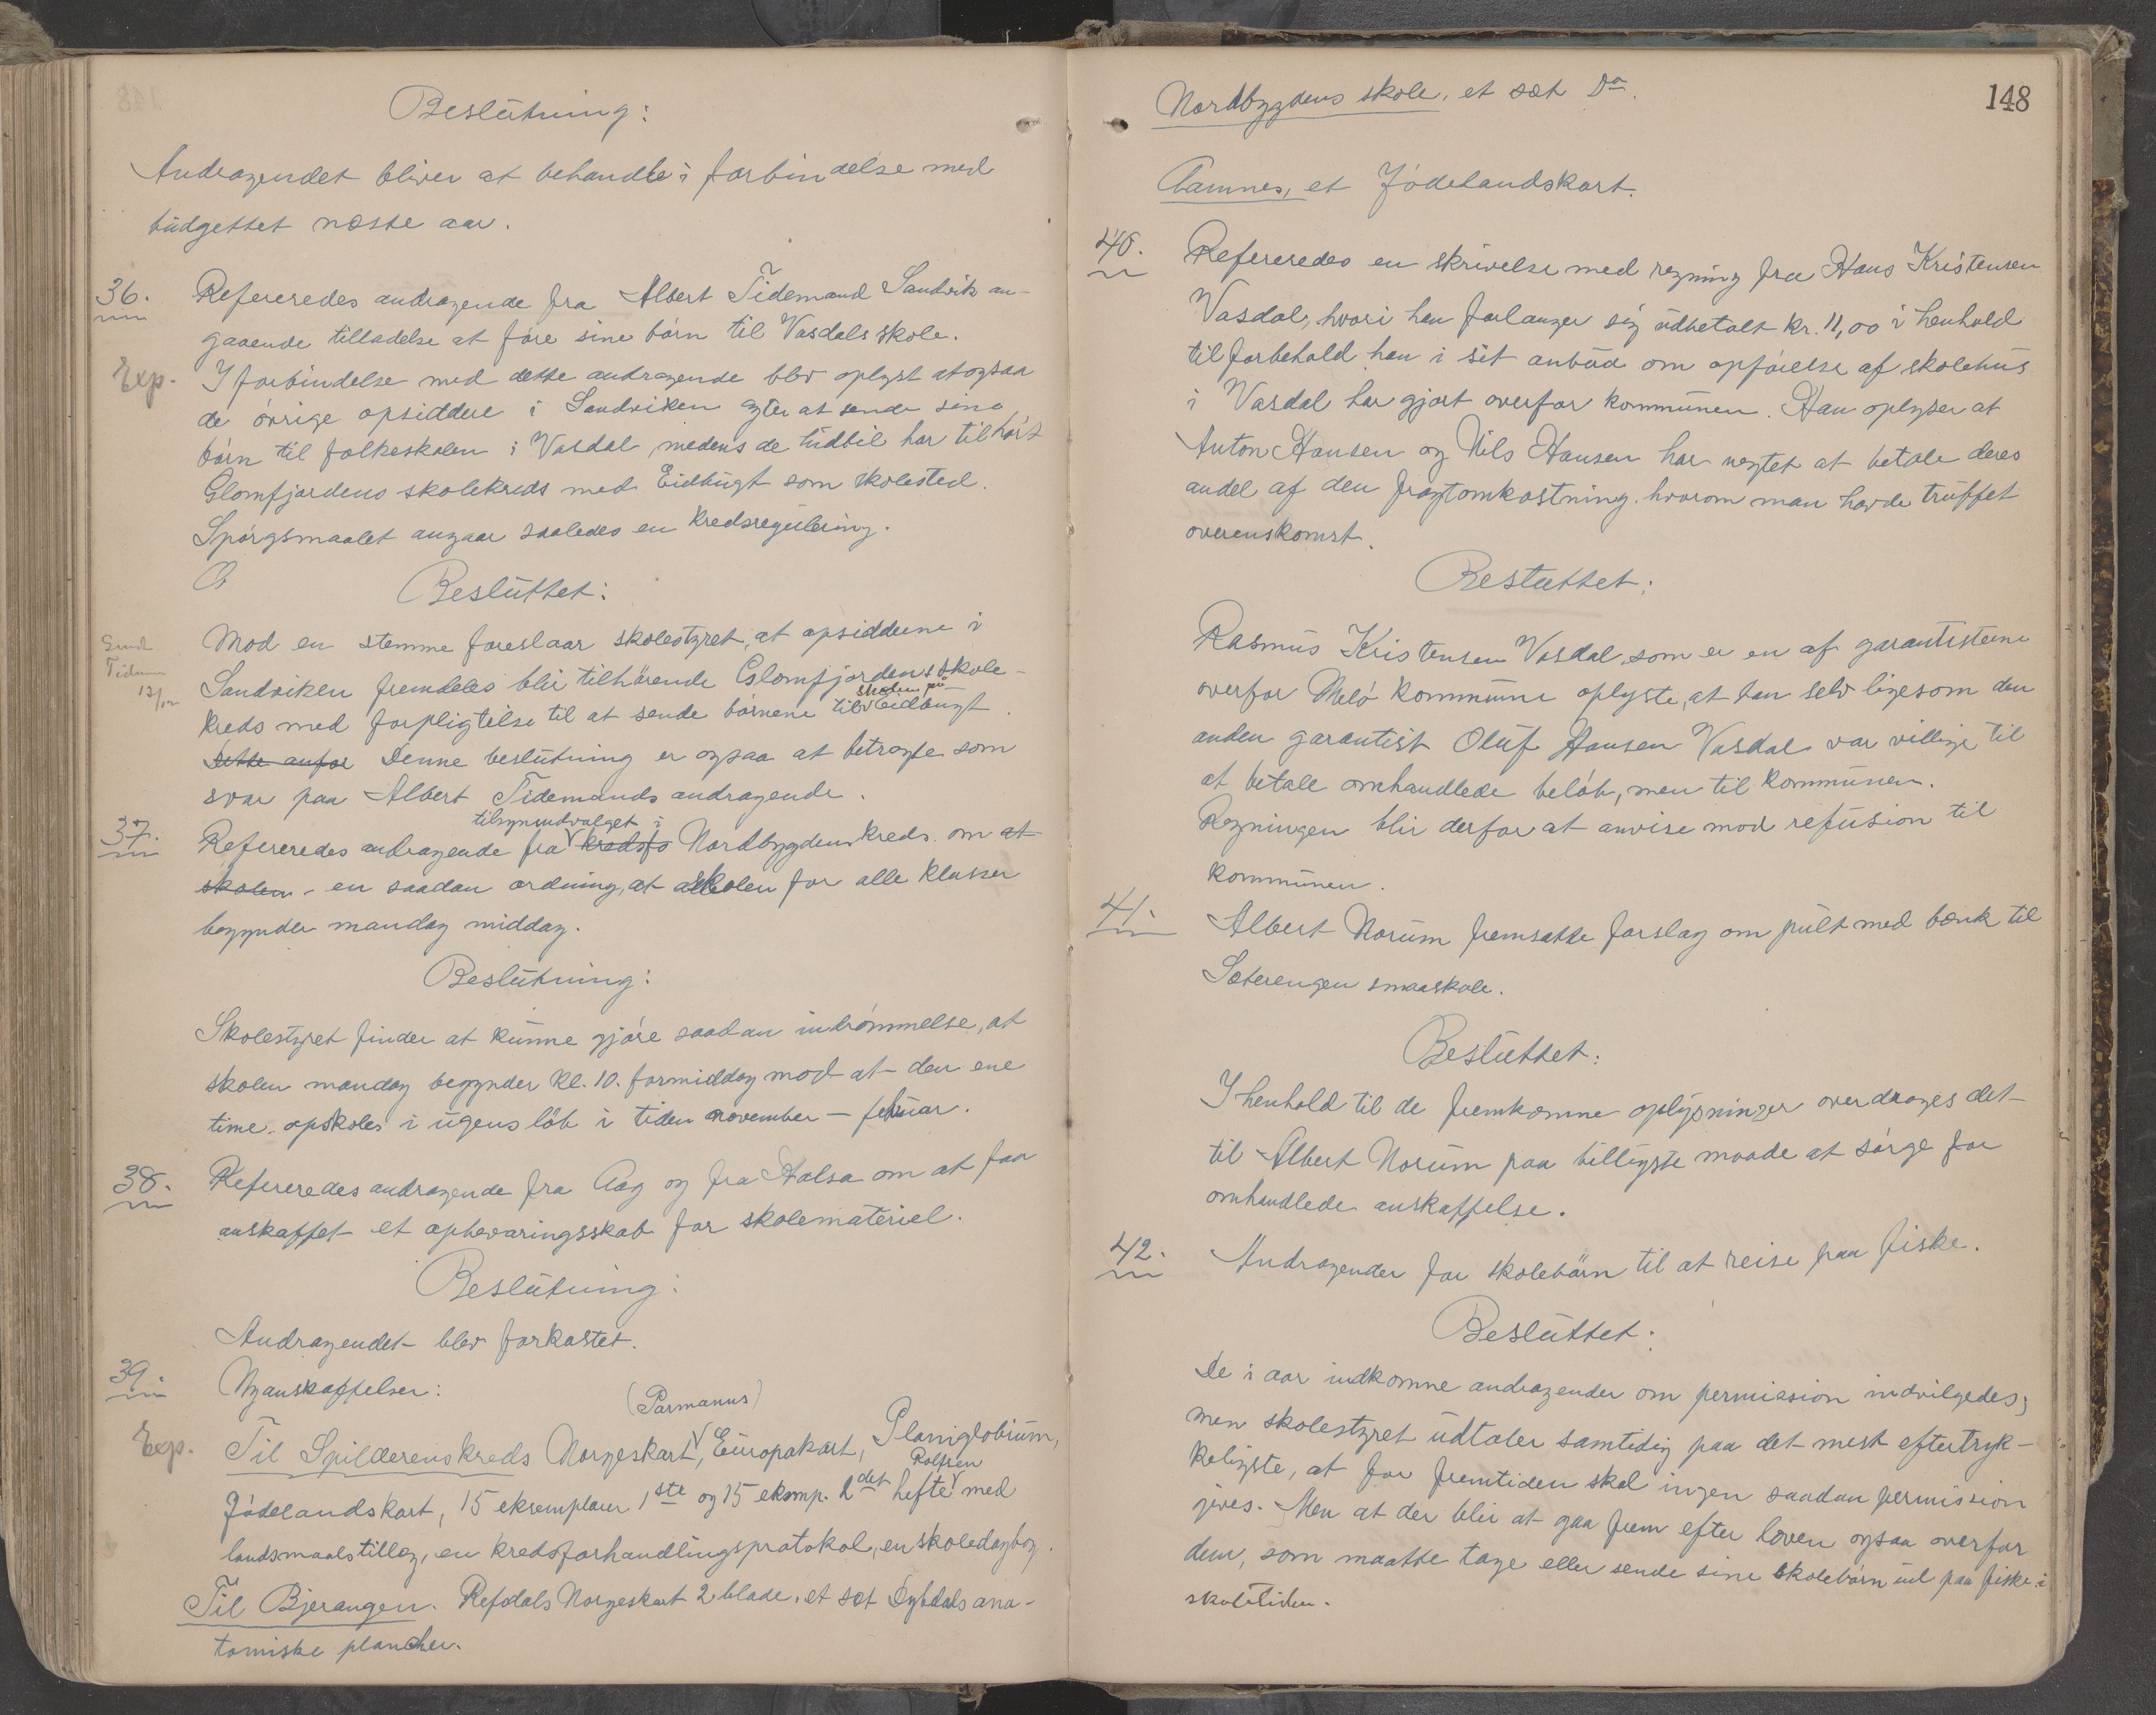 Beslutning:
Andragendet bliver at behandle i forbindelse med
budgettet næste aar.
36. Refereredes andragende fra Albert Tidemand Sandvik an-
gaaende tilladelse at føre sine børn til Vasdals skole.
Exp. I forbindelse med dette andragende blev oplyst at ogsaa
de øvrige opsiddere i Sandviken agter at sende sine
børn til folkeskolen i Vasdal, medens de hidtil har tilhørt
Glomfjordens skolekreds med Eidbugt som skolested.
Spørgsmaalet angaar saaledes en kredsregulering.
Besluttet:
Mod en stemme foreslaar skolestyret, at opsidderne i
Sandviken fremdeles blir tilhørende Glomfjordens skole-
kreds med forpligtelse til at sende børnene til skolen på Eidbugt.
Dette anfør Denne beslutning er ogsaa at betragte som
svar paa Albert Tidemands andragende.
37. Refereredes andragende fra tilsynsudvalget i kredsfo Nordbygdens kreds om at
skolen - en saadan ordning, at skolen for alle klasser
begynder mandag middag.
Beslutning:
Skolestyret finder at kunne gjøre saadan indrømmelse, at
skolen mandag begynder kl. 10. formiddag mod at den ene
time opskoles i ugens løb i tiden november — februar.
38. Refereredes andragende fra Aag og fra Halsa om at faa
anskaffet et opbevaringsskab for skolemateriel.
Beslutning:
Andragendet blev forkastet.
39. Nyanskaffelser:
(Parmanns)
Exp. Til Spilderens kreds Norgeskart, Europakart, Planiglobium,
Jødelandskart, 15 eksemplarer 1ste og 15 eksmp. 2det hefte Rolfsen med
landsmaalstillæg, en kredsforhandlingsprotokol, en skoledagbog.
Til Bjerangen. Refsdals Norgeskart 2 blade, et sæt Dybdals ana-
tomiske plancher.
148
Nordbygdens skole, et sæt Do.
Aamnes, et Jødelandskart.
40. Refereredes en skrivelse med regning fra Hans Kristensen
Vasdal, hvori han forlanger sig udbetalt kr. 11,00 i henhold
til forbehold han i sit anbud om opførelse af skolehus
i Vasdal har gjort overfor kommunen. Han oplyser at
Anton Hansen og Nils Hansen har negtet at betale deres
andel af den fragtomkostning hvorom man havde truffet
overenskomst.
Besluttet:
Rasmus Kristensen Vasdal, som er en af garantisterne
overfor Melø kommune oplyste, at han selv ligesom den
anden garantist Oluf Hansen Vasdal var villige til
at betale omhandlede beløb, men til kommunen.
Regningen blir derfor at anvise mod refusion til
kommunen.
41. Albert Norum fremsatte forslag om pult med bænk til
Sæterengen smaaskole.
Besluttet:
I henhold til de fremkomne oplysninger overdrages det
til Albert Norum paa billigste maade at sørge for
omhandlede anskaffelse.
42. Andragender for skolebørn til at reise paa fiske.
Besluttet:
De i aar indkomne andragender om permission indvilgedes;
men skolestyret udtaler samtidig paa det mest eftertryk-
keligste, at for fremtiden skal ingen saadan permission
gives. Men at der blir at gaa frem efter loven ogsaa overfor
dem, som maatte tage eller sende sine skolebørn ud paa fiske i
skoletiden.